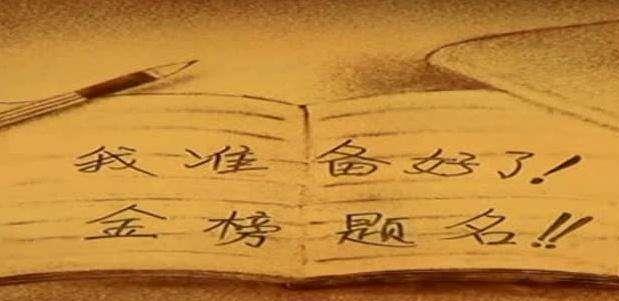 我准备好了!
金榜题名!!